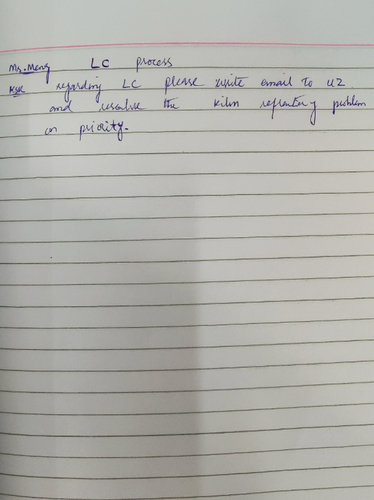 Mr. Meng LC process
regarding LC please write email to U2
and resolve the kiln refractory problem
on priority.